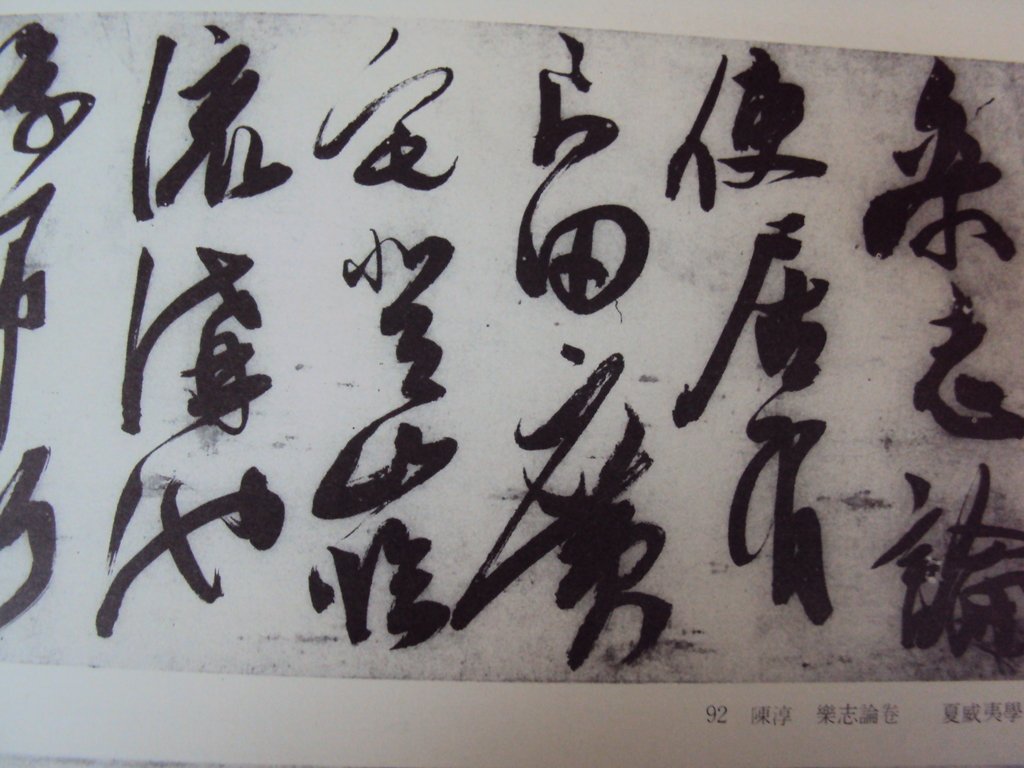 樂志論
使居有
良田廣
宅背山臨
流溝池
92 陳淳 樂志論卷 夏威夷學